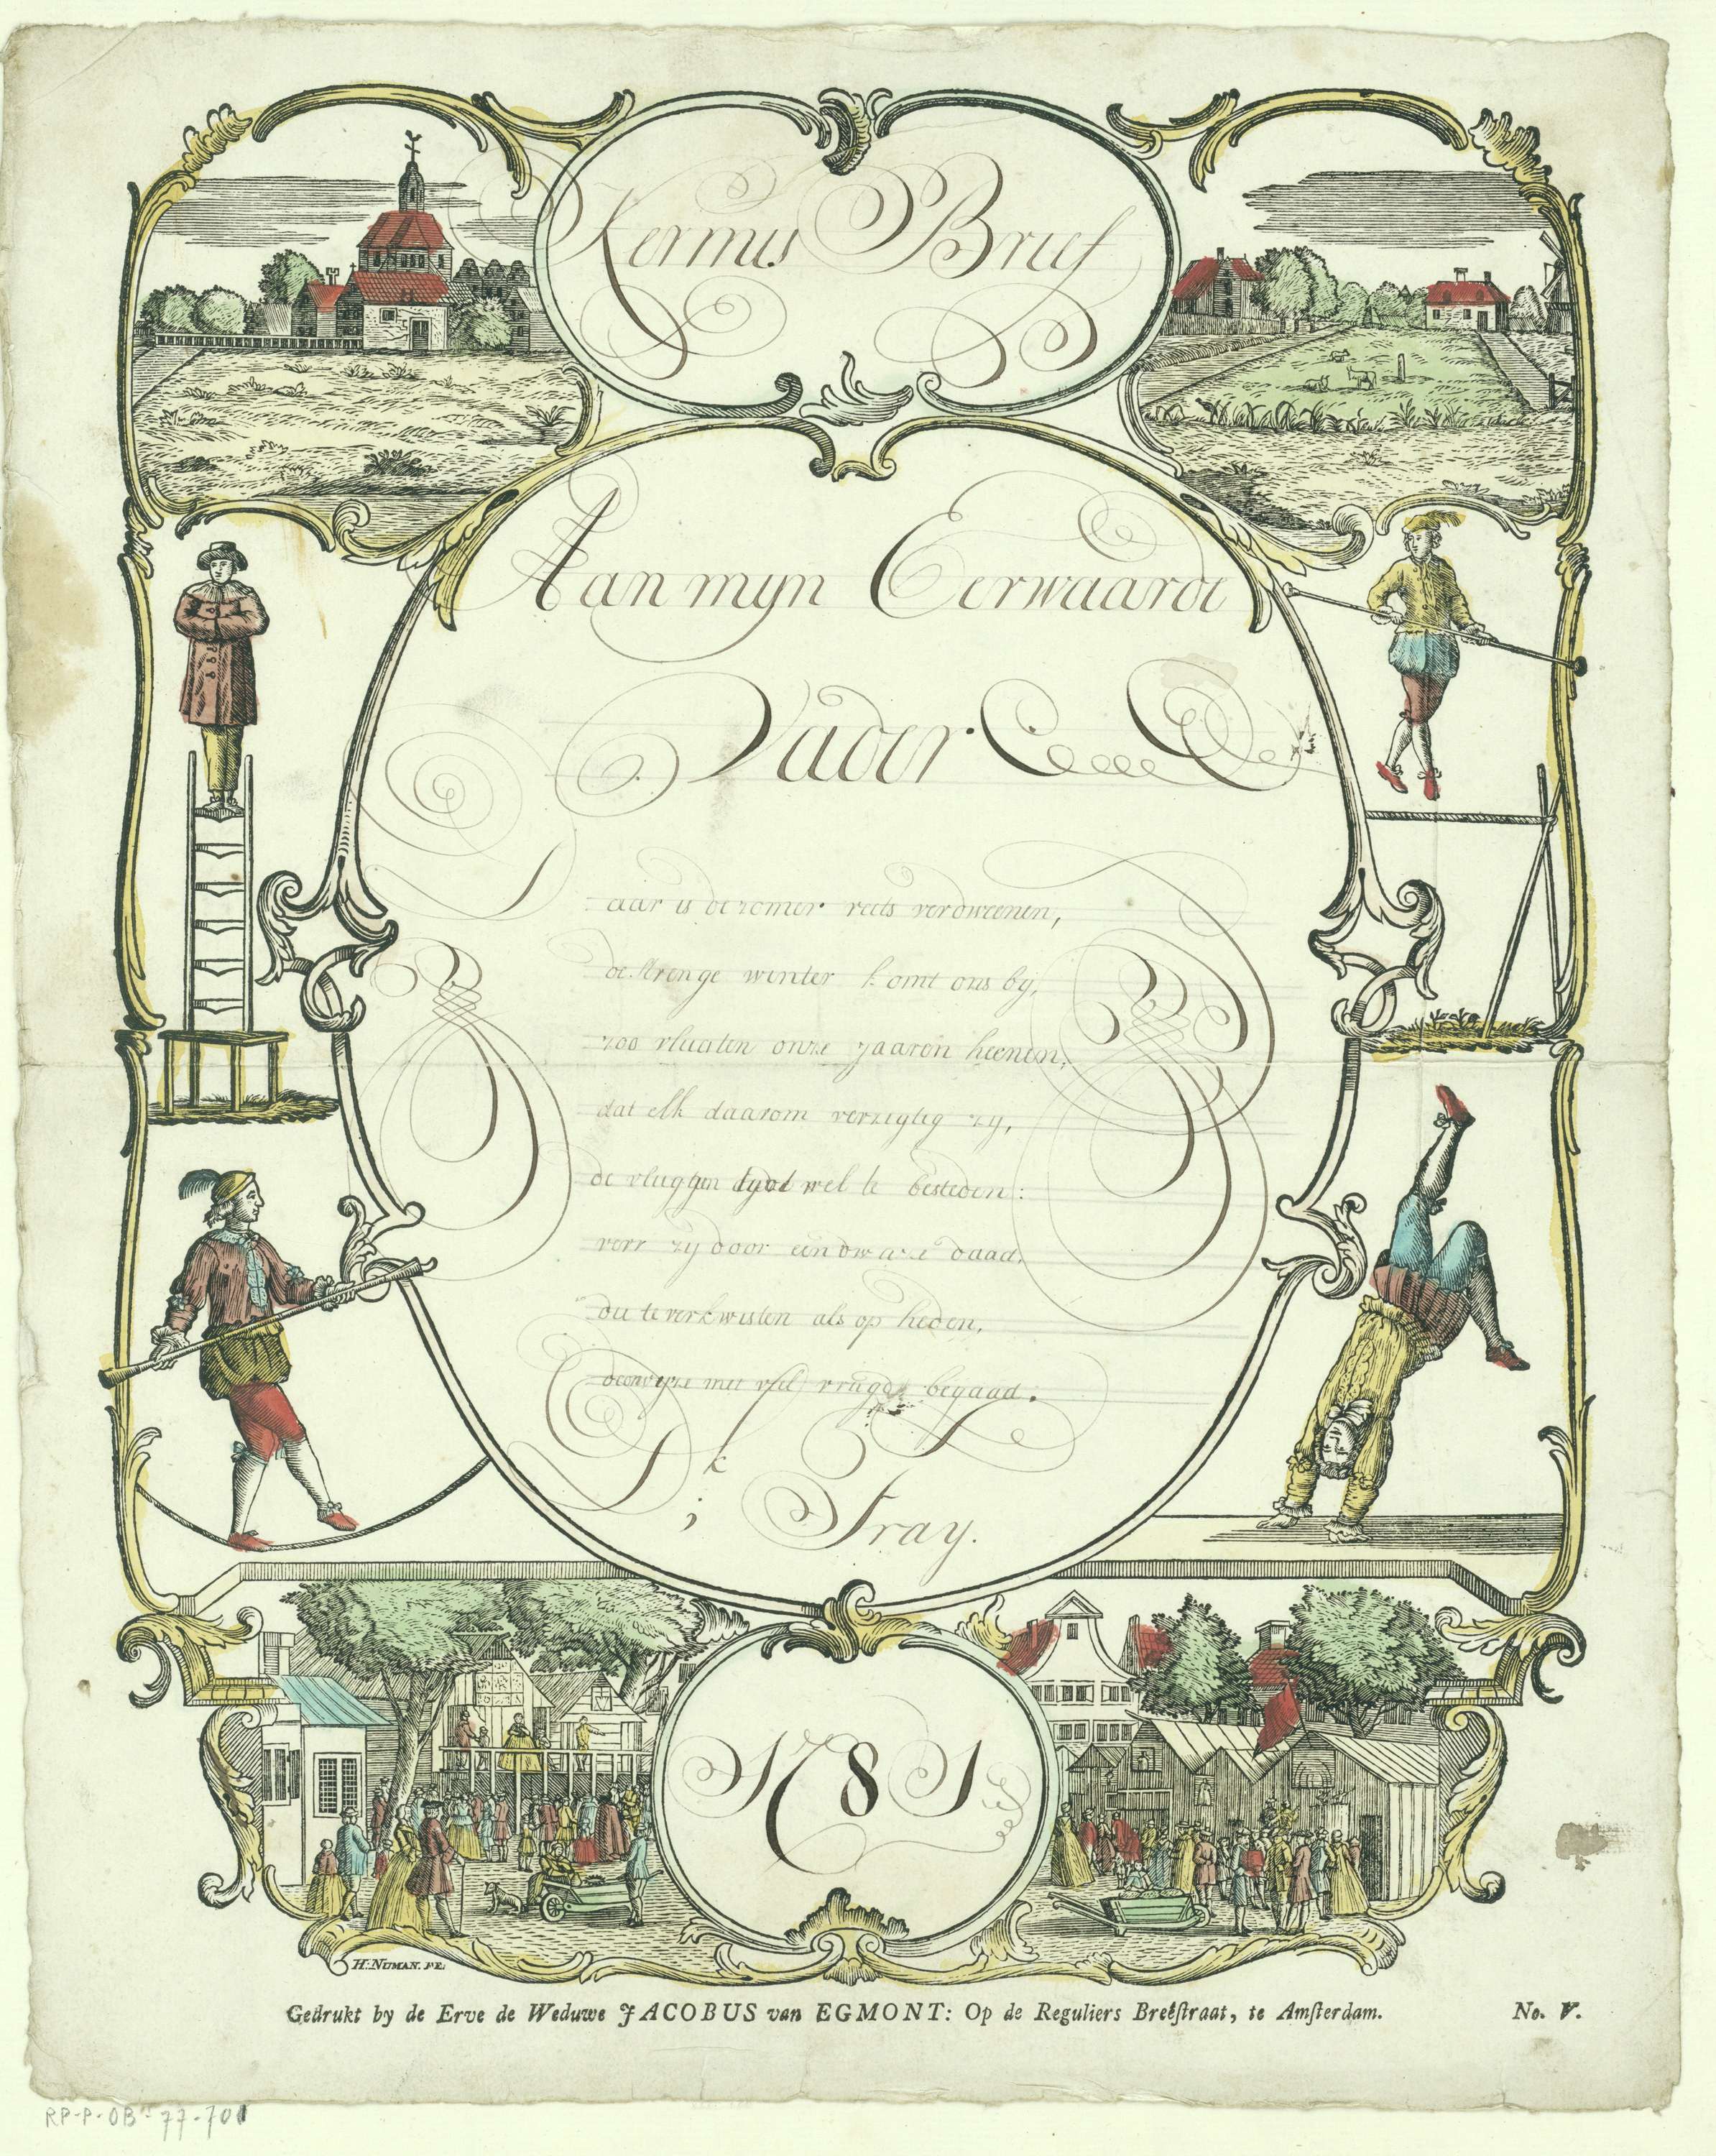 Kermis Brief
Aan mijn Eerwaarde
Vader
aar is de zomer reets verdweenen,
de strenge winter komt ons by,
zoo vlugten onze jaaren heenen,
dat elk daarom verzigtig zy,
de vlugtgen tyd wel te besteden:
verr zy door een dwaze daad,
die te verkwisten als op heden,
met veel vreugde begaad.
k
Fray.
1781
H: NUMAN. FE.
Gedrukt by de Erve de Weduwe JACOBUS van EGMONT: Op de Reguliers Breêstraat, te Amsterdam. No. V.
RP-P-OB-77-701